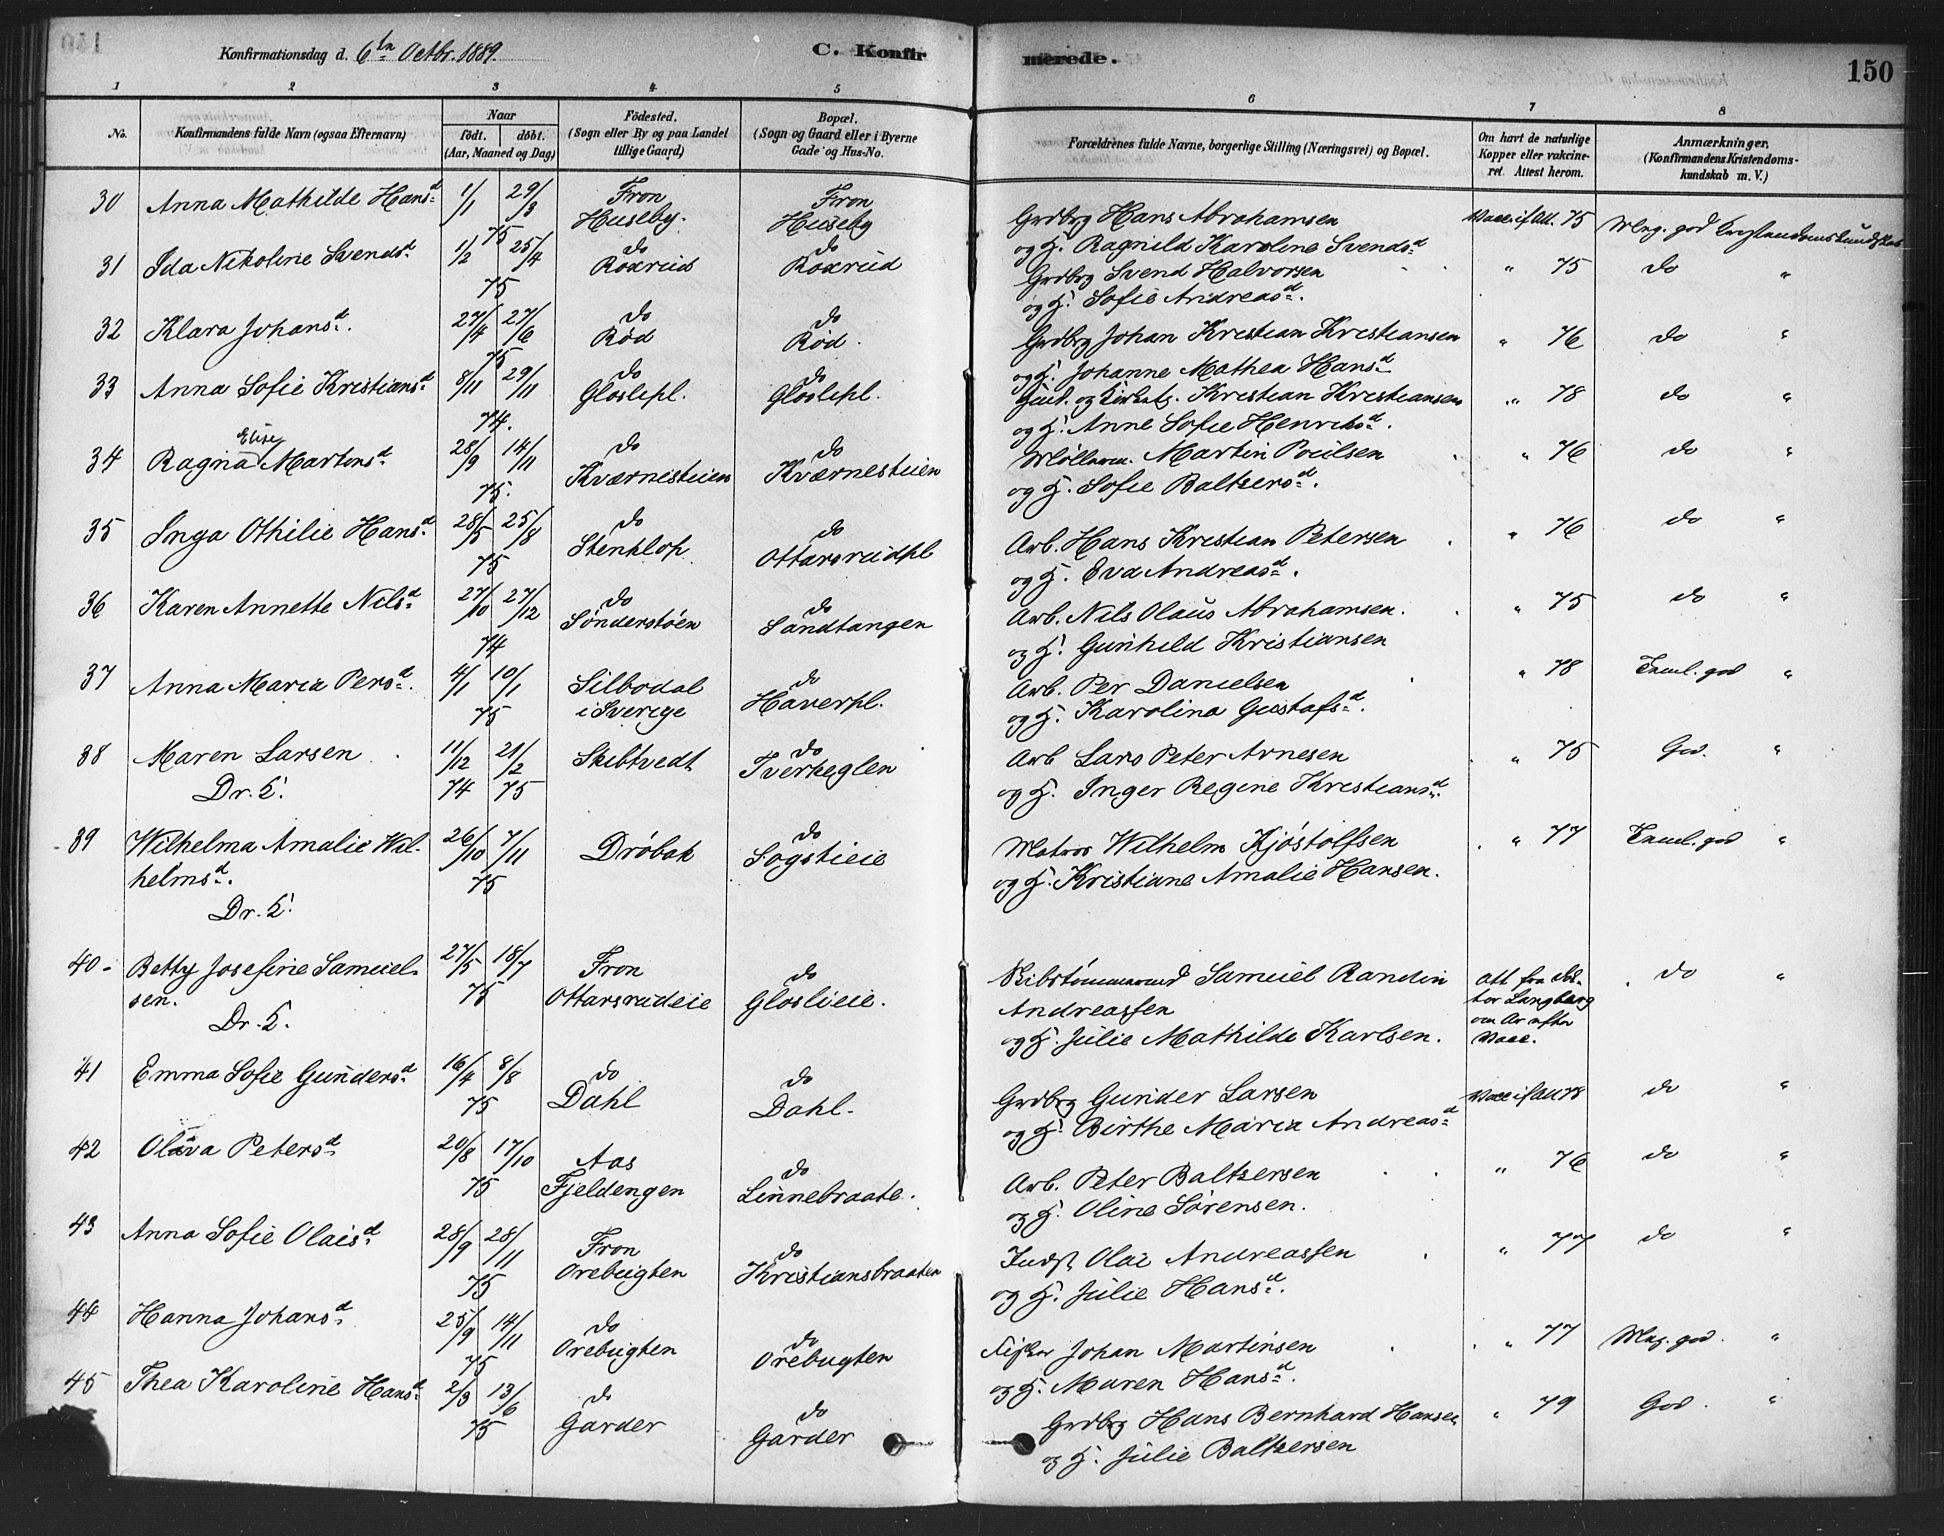 Konfirmationsdag d. 6te Octbr. 1889.
C. Konfirmerede.
150
1 2 3 4 5 6 7 8
No. Konfirmandens fulde Navn (ogsaa Efternavn) Naar födt. döbt. (Aar, Maaned og Dag) Födested. (Sogn eller By og paa Landet tillige Gaard) Bopæl. (Sogn og Gaard eller i Byerne Gade og Hus-No. Forældrenes fulde Navne, borgerlige Stilling (Næringsvei) og Bopæl. Om havt de naturlige Kopper eller vakcineret. Attest herom. Anmærkninger. (Konfirmandens Kristendomskundskab m. V.)
30 Anna Mathilde Hansd 1/1 29/3 75 Fron Huseby. Fron Huseby
Grdbrg Hans Abrahamsen Vacc. if. Att. 75 Mcg. god Cristendomskundskab
og H. Ragnild Karoline Svendsd
31 Ida Nikoline Svendsd 1/2 25/4 75 do Roxrud do Roxrud
Grdbrg Svend Halvorsen " 75 do "
og H. Sofie Andreasd.
32 Klara Johansd. 27/4 27/6 75 do Rød do Rød.
Grdbrg Johan Kristian Kristiansen " 76 do "
og H. Johanne Mathea Hansd
33 Anna Sofie Kristiansd 8/11 29/11 74. do Gloslipl. do Gloslipl.
Kristian Kristiansen " 78 do "
og H. Anne Sofie Henriksd.
34 Ragna Elise Martinsd 28/9 14/11 75. do Kværnesteien do Kværnesteien
Martin Poulsen " 76 do "
og H. Sofie Baltzersd.
35 Inga Othilie Hansd. 28/5 25/8 75 do Stenklop do Ottarsrudpl
Arb. Hans Kristian Petersen " 76 do "
og H. Eva Andreasd.
36 Karen Annette Nilsd 27/10 27/12 74 do Sønderstøen do Sandtangen
Arb. Nils Olaus Abrahamsen. " 75 do "
og H. Gunhild Kristiansen
37 Anna Maria Persd. 4/1 10/1 75 Silbodal i Sverige do Haverpl.
Arb. Per Danielsen " 78 Teml. god "
og H. Karolina Gustafsd.
38 Maren Larsen 11/12 74 21/2 75 Skibtvedt do Tverheglen
Dr. K!
Arb Lars Peter Arnesen " 75 God. "
og H. Inger Regine Kristiansd.
39 Wilhelma Amalie Wil- 26/10 7/11 75 Drøbak do Sogstieie
helmsd.
Dr. K!
Matros Wilhelm Kjøstolfsen " 77 Teml. god "
og H. Kristiane Amalie Hansen.
40 - Betty Josefine Samuel- 27/5 18/7 75 Fron Ottarsrudeie do Gloslieie.
sen.
Dr. K.
Skibstømmermd Samuel Randin Att fra Dok- do "
Andreassen tor Langberg
og H. Julie Mathilde Karlsen. om Ar efter Vacc.
41 Emma Sofie Gundersd 16/4 8/8 75 do Dahl do Dahl.
Grdbrg Gunder Larsen Vacc if Att 78 do "
og H. Birthe Maria Andreasd
42 Olava Petersd 20/8 17/10 75 Aas Fjeldengen do Linnebraate.
Arb. Peter Baltzersen " 76 do "
og H. Oline Sørensen.
43 Anna Sofie Olaisd 28/9 28/11 75 Fron Orebugten do Kristiansbraaten
Indst Olai Andreassen " 77 do "
og H. Julie Hansd.
44 Hanna Johansd 25/9 14/11 75 do Orebugten do Orebugten
Fisker Johan Martinsen " 77 Mcg. god. "
og H. Maren Hansd.
45 Thea Karoline Hansd 2/3 13/6 75 do Garder do Garder
Grdbrg Hans Bernhard Hansen " 79 God. "
og H. Julie Baltzersen